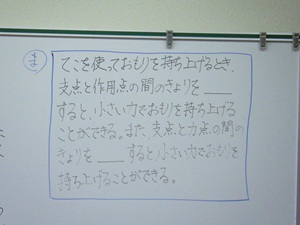 ま
てこを使っておもりを持ち上げるとき、
支点と作用点の間のきょりを ____
すると、小さい力でおもりを持ち上げる
ことができる。また、支点と力点の間の
きょりを ____ すると小さい力でおもりを
持ち上げることができる。